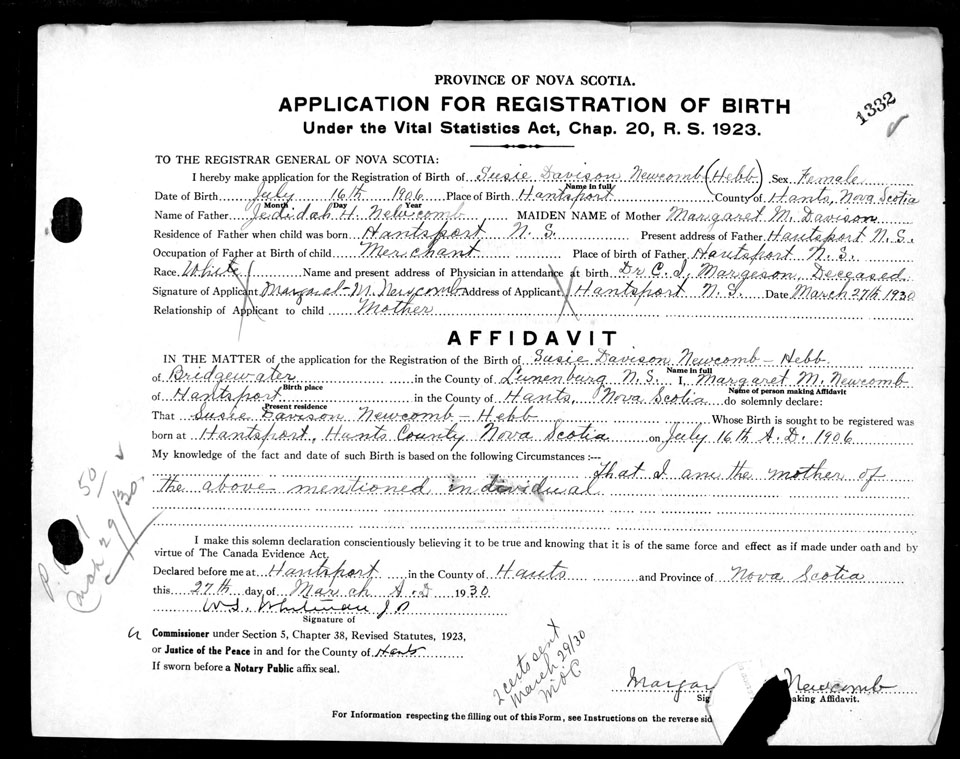 PROVINCE OF NOVA SCOTIA.
APPLICATION FOR REGISTRATION OF BIRTH
1332
Under the Vital Statistics Act, Chap. 20, R. S. 1923.
TO THE REGISTRAR GENERAL OF NOVA SCOTIA:
I hereby make application for the Registration of Birth of Susie Davison Newcomb (Hebb) Sex Female
Name in full
Date of Birth July 16th 1906 Place of Birth Hantsport County of Hants, Nova Scotia
Month Day Year
Name of Father Jedidah H. Newcomb MAIDEN NAME of Mother Margaret M. Davison
Residence of Father when child was born Hantsport N. S. Present address of Father Hantsport N. S.
Occupation of Father at Birth of child Merchant Place of birth of Father Hantsport N. S.
Race White Name and present address of Physician in attendance at birth Dr C. I. Margeson, Deceased
Signature of Applicant Margaret M. Newcomb Address of Applicant Hantsport N. S. Date March 27th 1930
Relationship of Applicant to child Mother
AFFIDAVIT
IN THE MATTER of the application for the Registration of the Birth of Susie Davison Newcomb - Hebb
Name in full
of Bridgewater in the County of Lunenburg N. S. I, Margaret M. Newcomb
Birth place Name of person making Affidavit
of Hantsport in the County of Hants, Nova Scotia do solemnly declare:
Present residence
That Susie Davison Newcomb - Hebb Whose Birth is sought to be registered was
born at Hantsport, Hants County Nova Scotia on July 16th A. D. 1906
My knowledge of the fact and date of such Birth is based on the following Circumstances :---
That I am the mother of
the above mentioned individual
I make this solemn declaration conscientiously believing it to be true and knowing that it is of the same force and effect as if made under oath and by
virtue of The Canada Evidence Act.
Declared before me at Hantsport in the County of Hants and Province of Nova Scotia
this 27th day of March A. D 1930
W. S. Whitman J P
Signature of
a Commissioner under Section 5, Chapter 38, Revised Statutes, 1923,
or Justice of the Peace in and for the County of Hants
If sworn before a Notary Public affix seal.
50
Mch 29/30.
2 certs sent
March 29/30
Margar Newcomb
Sig aking Affidavit.
For Information respecting the filling out of this Form, see Instructions on the reverse sid